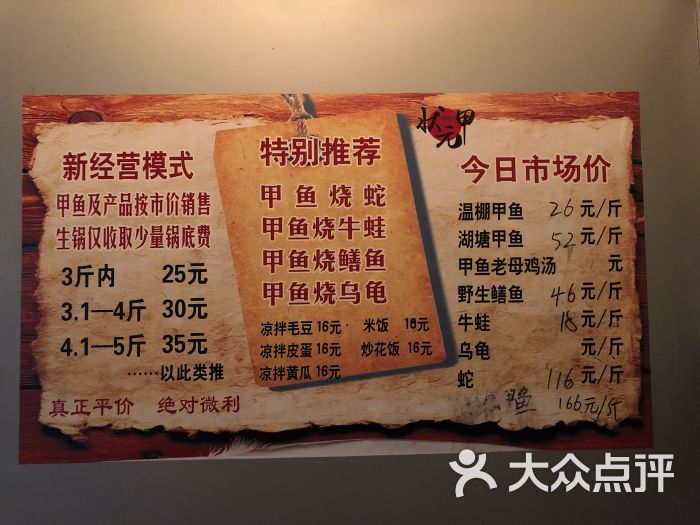 新经营模式
甲鱼及产品按市价销售
生锅仅收取少量锅底费
3斤内 25元
3.1—4斤 30元
4.1—5斤 35元
……以此类推
真正平价 绝对微利
特别推荐
甲鱼烧蛇
甲鱼烧牛蛙
甲鱼烧鳝鱼
甲鱼烧乌龟
凉拌毛豆16元· 米饭 10元
凉拌皮蛋16元 炒花饭 16元
凉拌黄瓜16元
状元甲
今日市场价
温棚甲鱼 26元/斤
湖塘甲鱼 52元/斤
甲鱼老母鸡汤 元
野生鳝鱼 46元/斤
牛蛙 18元/斤
乌龟 元/斤
蛇 116元/斤
甲鱼 166元/斤
大众点评